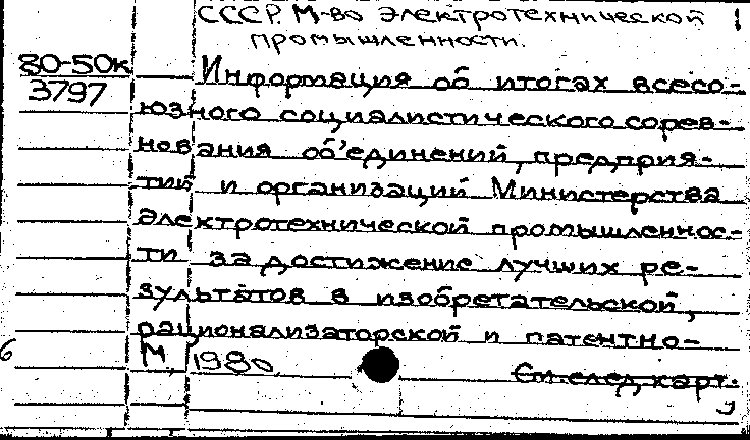 СССР. М-во электротехнической
промышленности.
80-50к
3797
Информация об итогах всесо-
юзного социалистического сорев-
нования об'единений, предприя-
тий и организаций Министерства
электротехнической промышленнос-
ти за достижение лучших ре-
зультатов в изобретательской,
рационализаторской и патентно-
М., 1980.
См. след. карт.
6